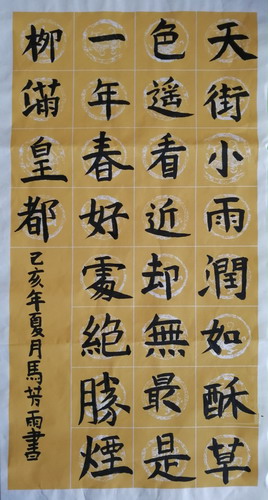 天街小雨潤如酥草
色遥看近却無最是
一年春好處絕勝煙
柳滿皇都
己亥年夏月馬芳雨書